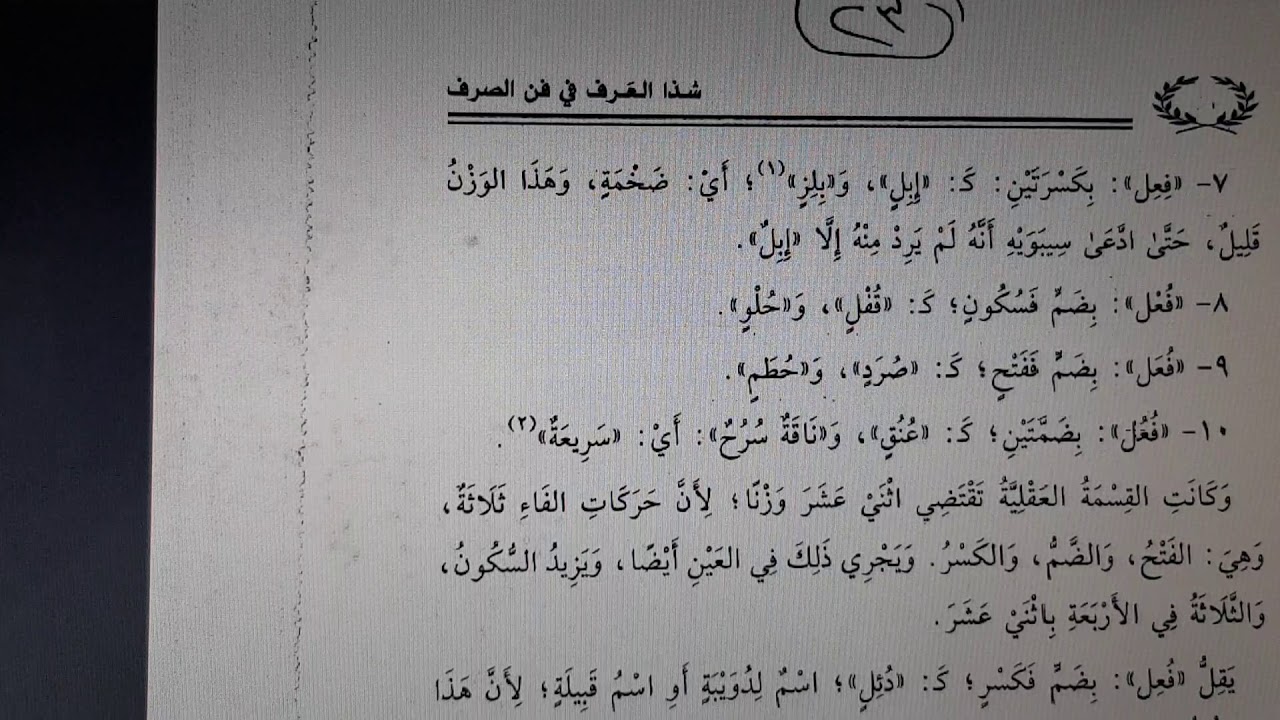 ٢٣
شذا العَرف في فن الصرف
٧- «فِعِل»: بِكَسْرَتَيْنِ: كَـ: «إِبِلٍ»، وَ«بِلِزٍ»(١)؛ أَيْ: ضَخْمَةٍ، وَهَذَا الوَزْنُ
قَلِيلٌ، حَتَّىٰ ادَّعَىٰ سِيبَوَيْهِ أَنَّهُ لَمْ يَرِدْ مِنْهُ إِلَّا «إِبِلٌ».
٨- «فُعْل»: بِضَمٍّ فَسُكُونٍ؛ كَـ: «قُفْلٍ»، وَ«حُلْوٍ».
٩- «فُعَل»: بِضَمٍّ فَفَتْحٍ؛ كَـ: «صُرَدٍ»، وَ«حُطَمٍ».
١٠- «فُعُل»: بِضَمَّتَيْنِ؛ كَـ: «عُنُقٍ»، وَ«نَاقَةٌ سُرُحٌ»: أَيْ: «سَرِيعَةٌ»(٢).
وَكَانَتِ القِسْمَةُ العَقْلِيَّةُ تَقْتَضِي اثْنَيْ عَشَرَ وَزْنًا؛ لِأَنَّ حَرَكَاتِ الفَاءِ ثَلَاثَةٌ،
وَهِيَ: الفَتْحُ، وَالضَّمُّ، وَالكَسْرُ. وَيَجْرِي ذَلِكَ فِي العَيْنِ أَيْضًا، وَيَزِيدُ السُّكُونُ،
وَالثَّلَاثَةُ فِي الأَرْبَعَةِ بِاثْنَيْ عَشَرَ.
يَقِلُّ «فُعِل»: بِضَمٍّ فَكَسْرٍ؛ كَـ: «دُئِلٍ»؛ اسْمٌ لِدُوَيْبَةٍ أَو اسْمُ قَبِيلَةٍ؛ لِأَنَّ هَذَا